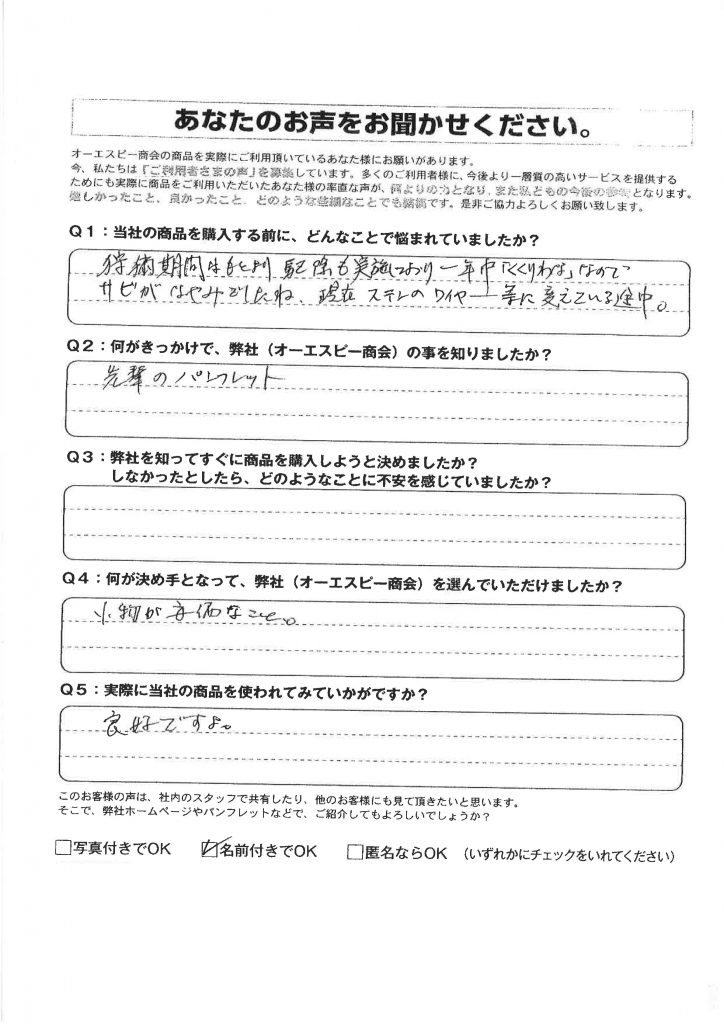 あなたのお声をお聞かせください。
オーエスピー商会の商品を実際にご利用頂いているあなた様にお願いがあります。
今、私たちは『ご利用者さまの声』を募集しています。多くのご利用者様に、今後より一層質の高いサービスを提供する
ためにも実際に商品をご利用いただいたあなた様の率直な声が、何よりの力となり、また私どもの今後の参考となります。
嬉しかったこと、良かったこと、どのような些細なことでも結構です。是非ご協力よろしくお願い致します。
Q1：当社の商品を購入する前に、どんなことで悩まれていましたか？
狩猟期間はもとより 駆除も実施しており一年中「くくりわな」なので
サビがなやみでしたね、現在ステンのワイヤー等に変えている途中。
Q2：何がきっかけで、弊社（オーエスピー商会）の事を知りましたか？
先輩のパンフレット
Q3：弊社を知ってすぐに商品を購入しようと決めましたか？
しなかったとしたら、どのようなことに不安を感じていましたか？
Q4：何が決め手となって、弊社（オーエスピー商会）を選んでいただけましたか？
小物が安価なこと。
Q5：実際に当社の商品を使われてみていかがですか？
良好ですよ。
このお客様の声は、社内のスタッフで共有したり、他のお客様にも見て頂きたいと思います。
そこで、弊社ホームページやパンフレットなどで、ご紹介してもよろしいでしょうか？
□写真付きでOK ☑名前付きでOK □匿名ならOK （いずれかにチェックをいれてください）